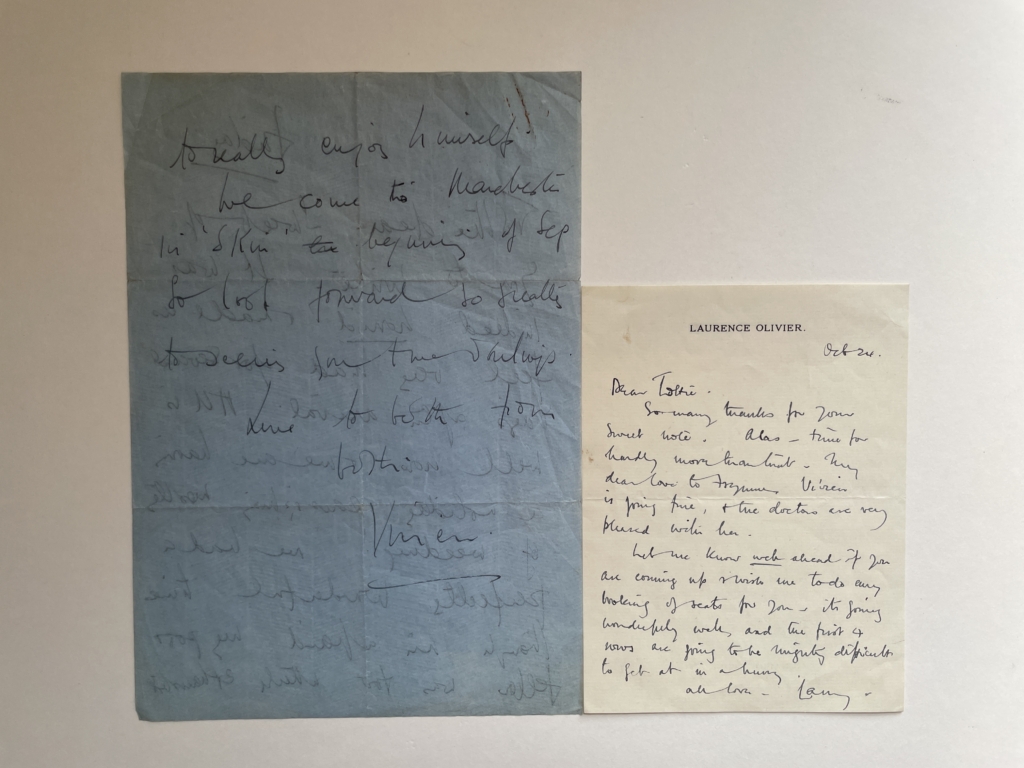 to really enjoy himself!
We come to Manchester
in 'Skin' the begining of Sep
So look forward so greatly
to seeing you two darlings.
Love to both from
both
Vivien
LAURENCE OLIVIER.
Oct 24.
Dear Tottie.
So many thanks for your
sweet note. Alas – time for
hardly more than that – My
dear love to Vivien
is going fine, & the doctors are very
pleased with her.
Let me know well ahead if you
are coming up & wish me to do any
booking of seats for you – its going
wonderfully well, and the first 4
rows are going to be mighty difficult
to get at in a hurry.
all love – Larry –